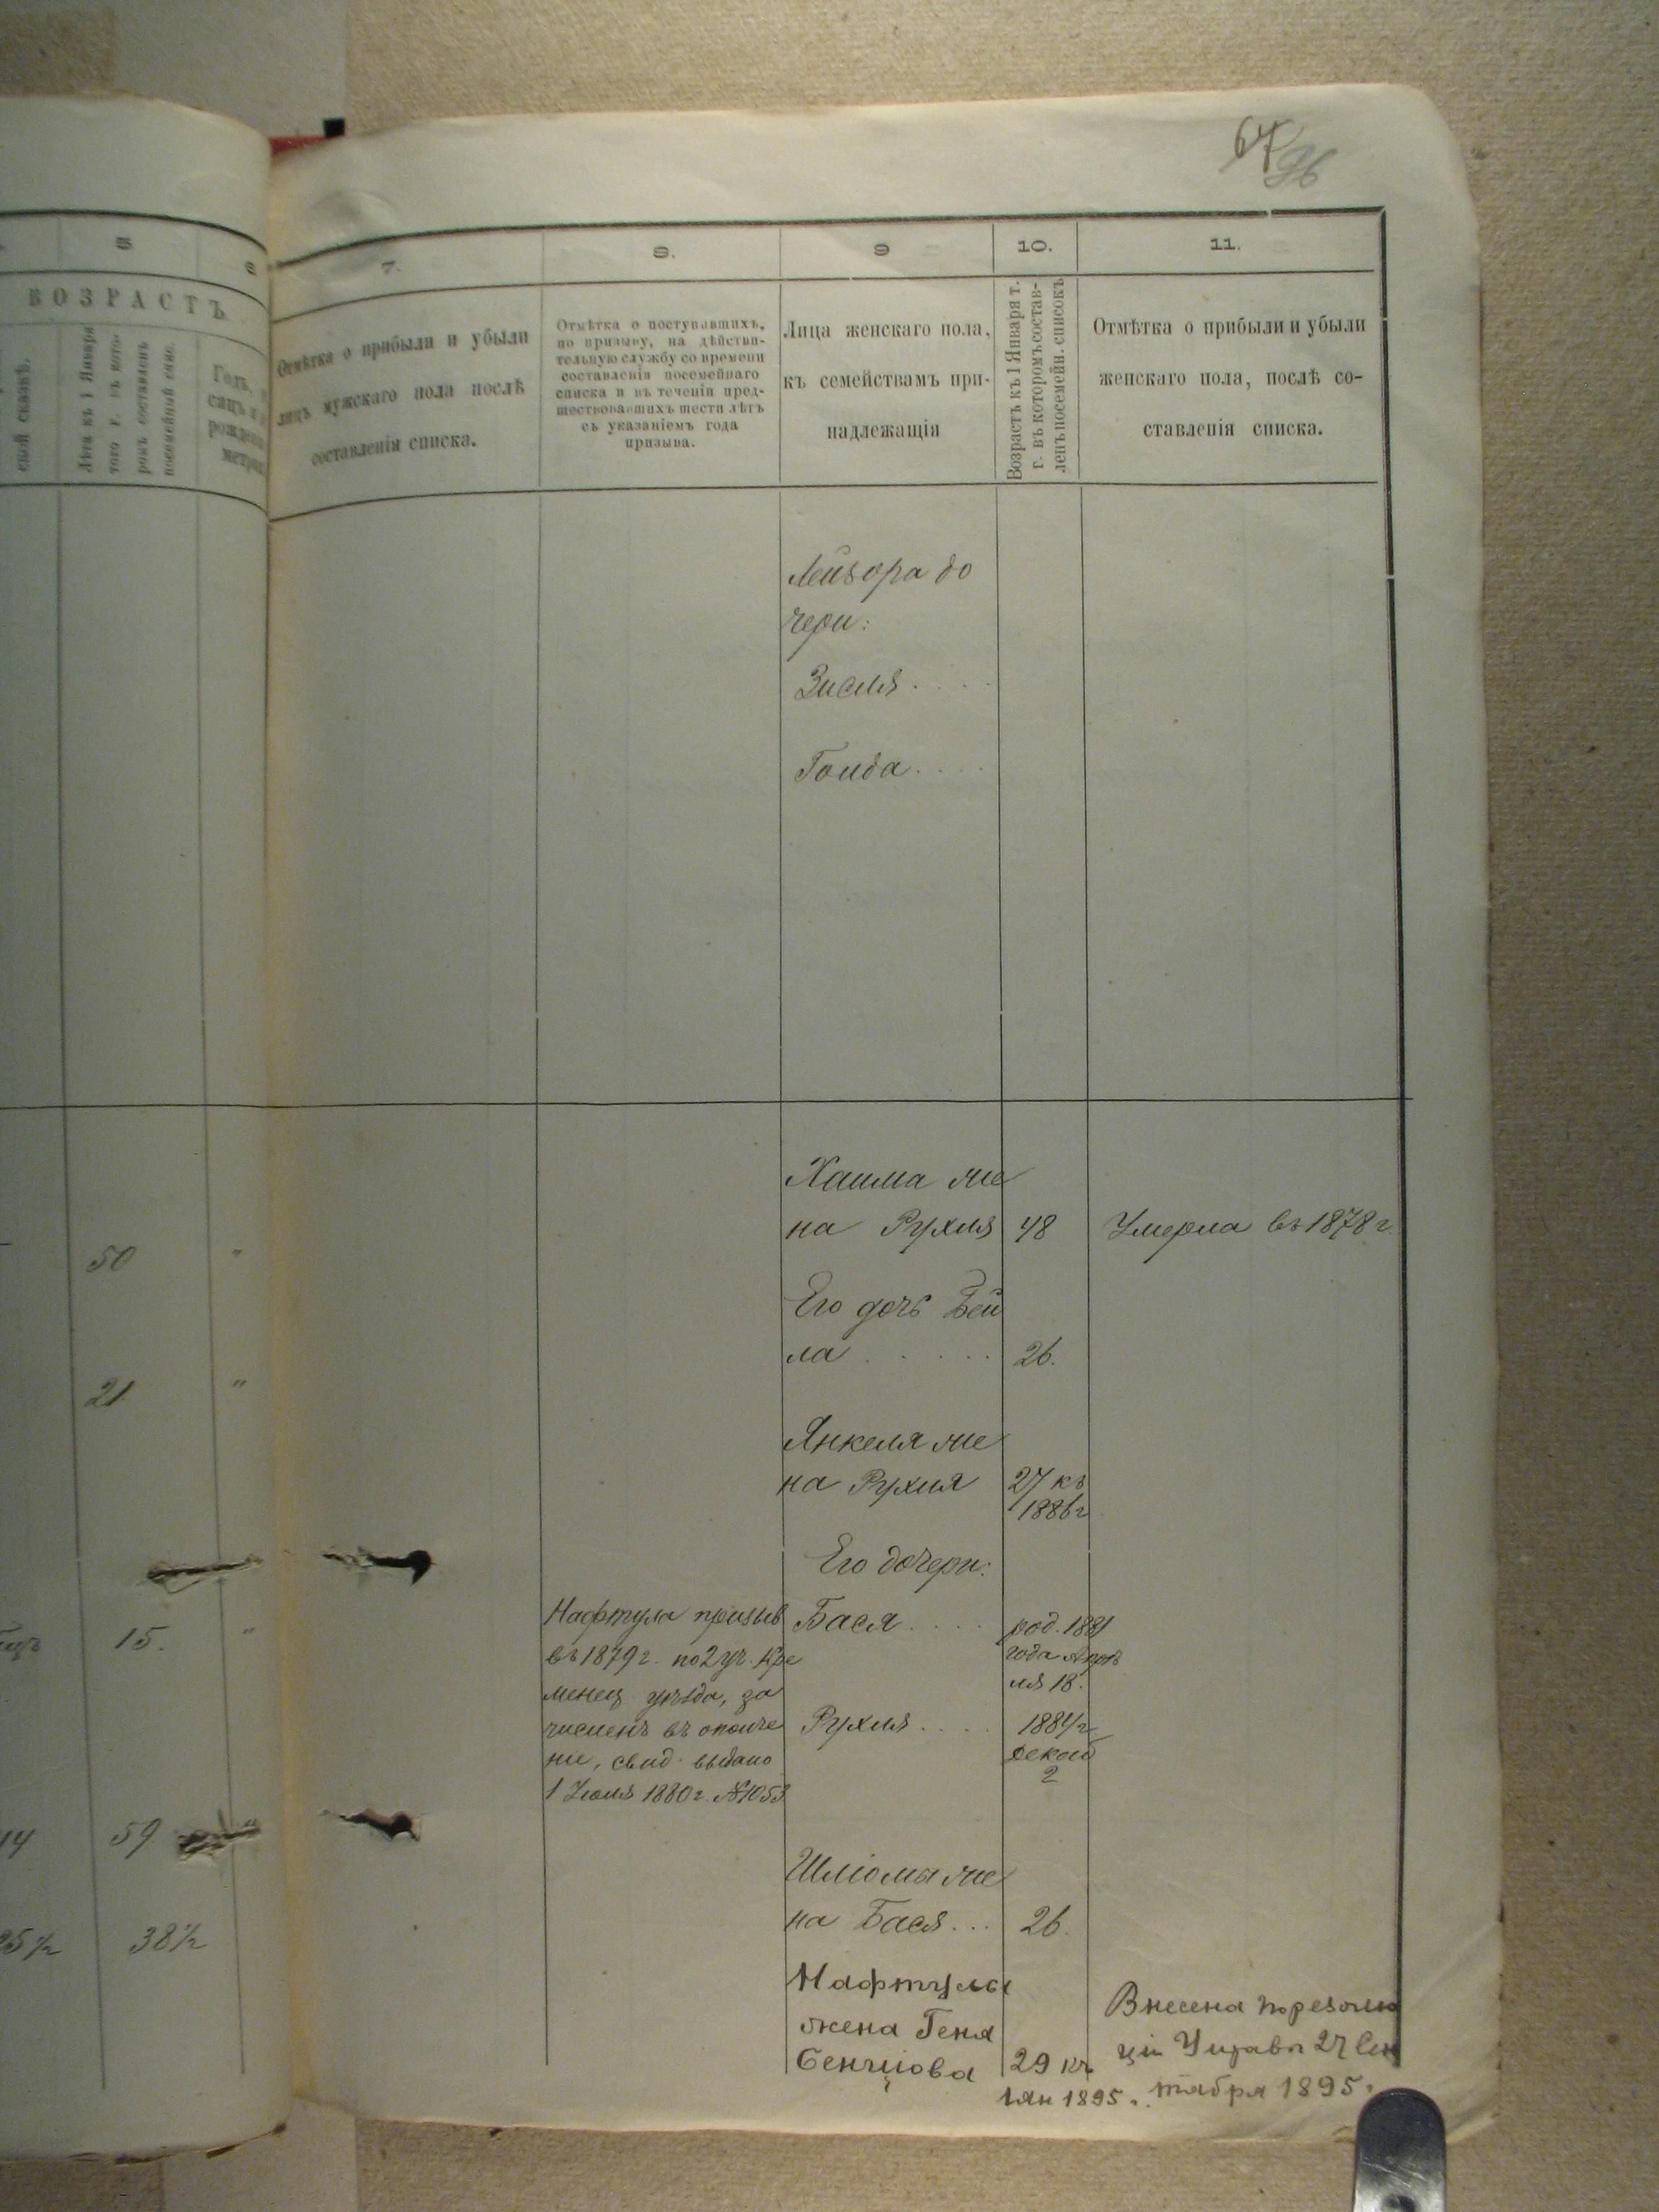 67
96
5
6
7.
8.
9
10.
11.
ВОЗРАСТЪ
Лѣта къ 1 Января
того г. въ кото-
ромъ составленъ
посемейный спис.
Отмѣтка о прибыли и убыли
лицъ мужскаго пола послѣ
составленія списка.
Отмѣтка о поступившихъ,
по призыву, на дѣйстви-
тельную службу со времени
составленія посемейнаго
списка и въ теченіи пред-
шествовавшихъ шести лѣтъ
съ указаніемъ года
призыва.
Лица женскаго пола,
къ семействамъ при-
надлежащія
Возрастъ къ 1 Января т.
г. въ которомъ состав-
ленъ посемейн. списокъ
Отмѣтка о прибыли и убыли
женскаго пола, послѣ со-
ставленія списка.
Лейзора до
чери:
Зисля . . . .
Гольда . . . .
Хаима же
на Рухля 48 Умерла въ 1878 г.
50 "
Его дочь Бей
ла . . . . . 26.
21 "
Янкеля же
на Рухля 27 къ
1886 г
Его дочери:
Нафтула призыв
въ 1879 г. по 2 уч. Кре
менец уѣзда, за
численъ въ ополче
ніе, свид. выдано
1 Іюля 1880 г. №1053
Бася . . . . род. 1881
года Апрѣ
ля 18.
15. "
Рухля . . . . 1884 г
декаб
2
59 "
Шліомы же
на Бася . . . 26.
38½
Нафтулы
жена Геня
Бенціова 29 къ
1 ян 1895 г.
Внесена по резолю
ціи Управы 27 Сен
тября 1895 г.